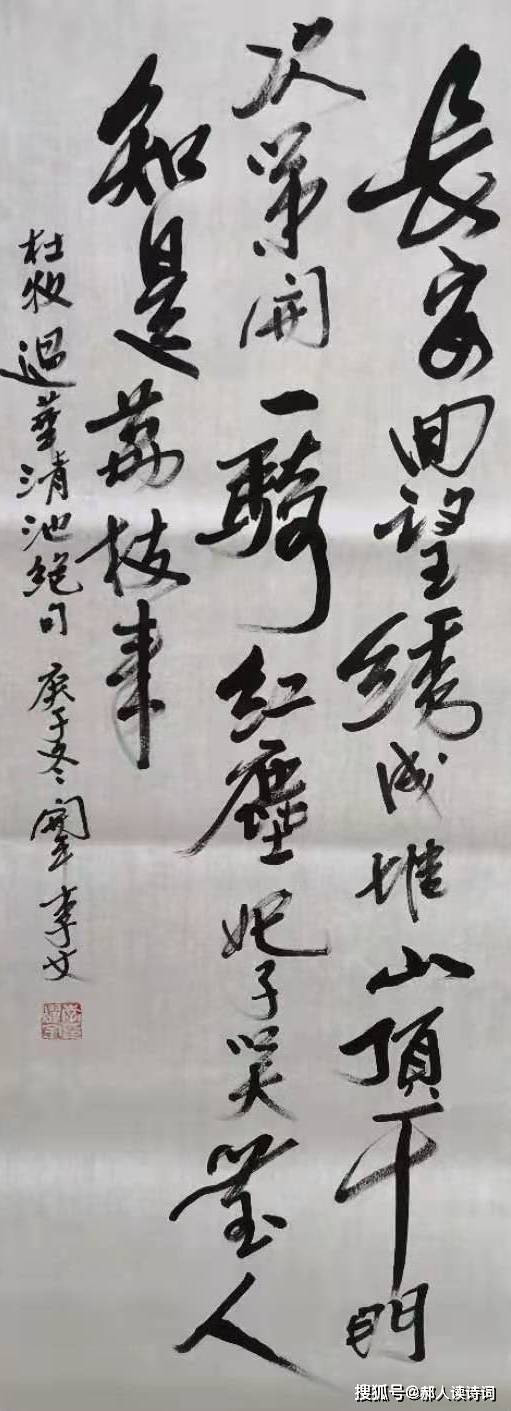 長安回望绣成堆山頂千門
次第開一騎紅塵妃子笑無人
知是荔枝来
杜牧過華清池絕句 庚子冬
搜狐号@郝人读诗词